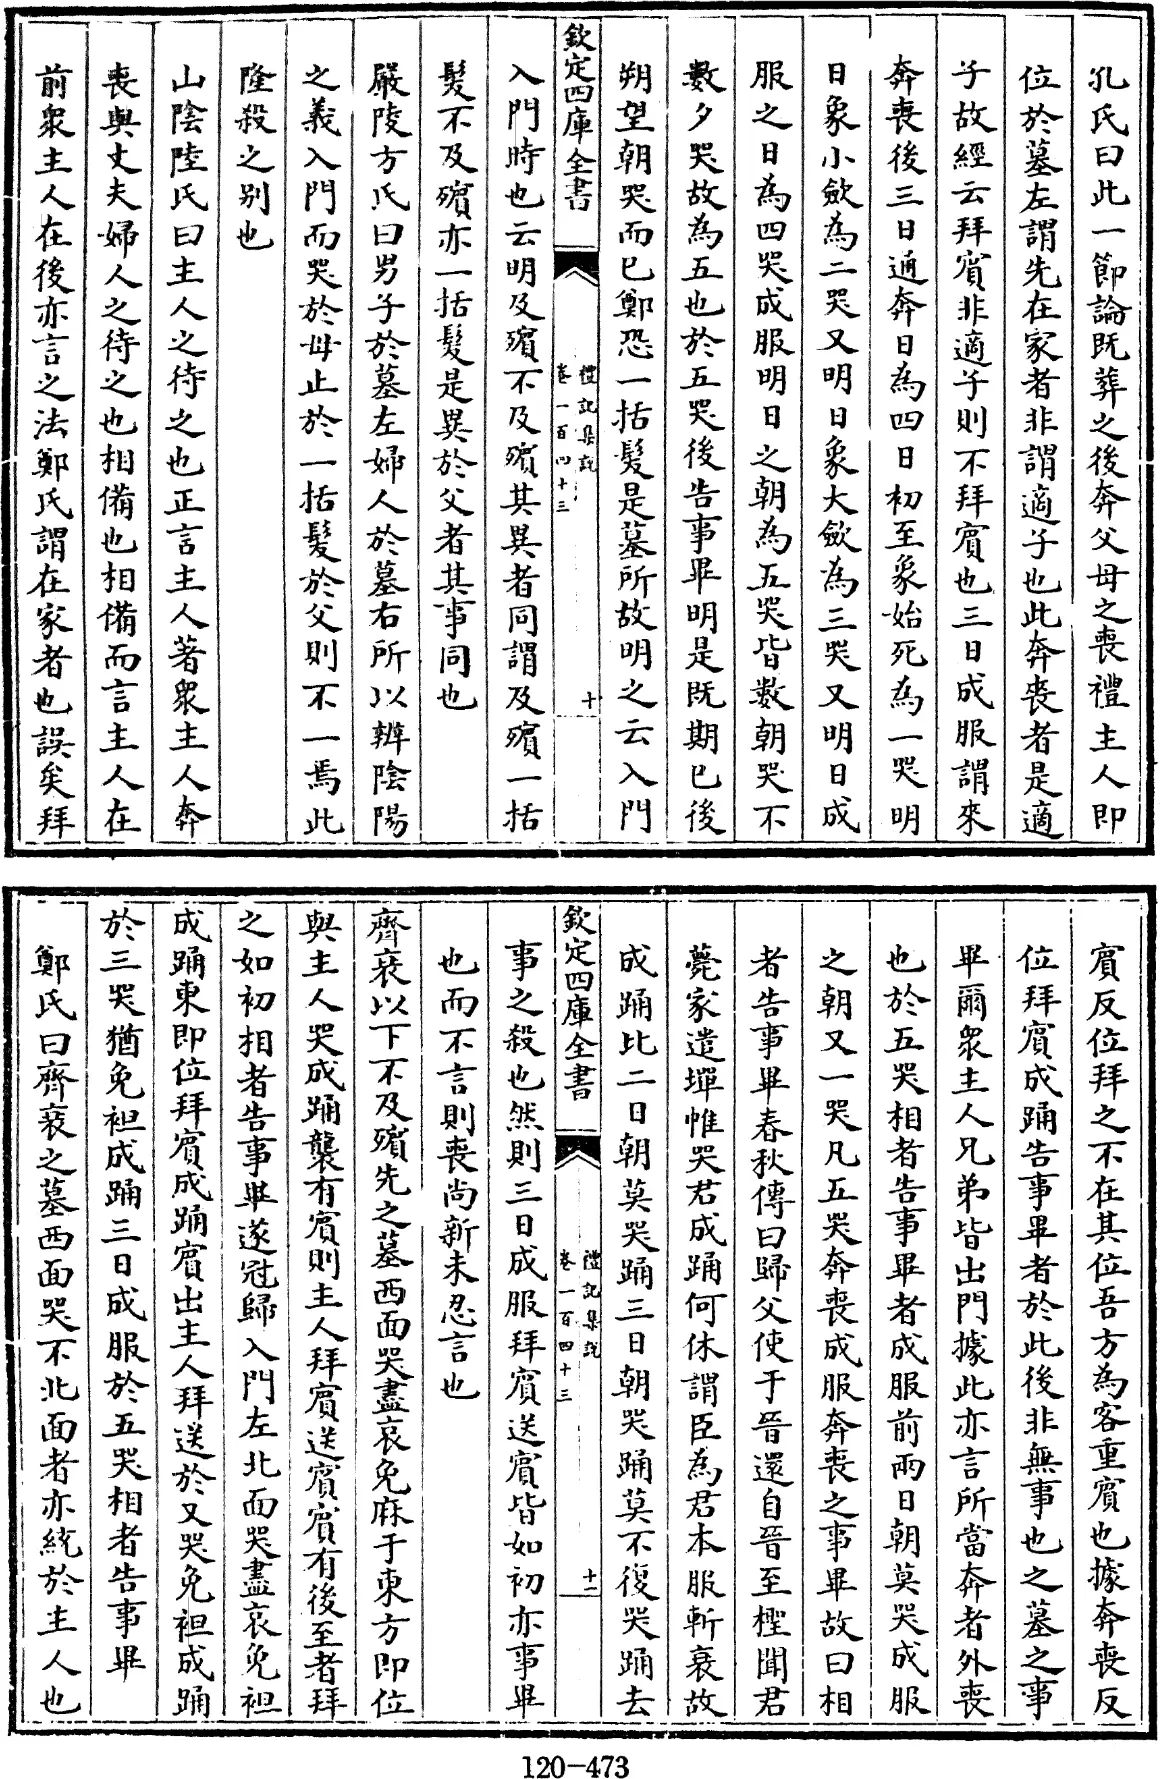 孔氏曰此一節論既葬之後奔父母之喪禮主人即
位於墓左謂先在家者非謂適子也此奔喪者是適
子故經云拜賓非適子則不拜賓也三日成服謂來
奔喪後三日通奔日為四日初至象始死為一哭明
日象小斂為二哭又明日象大斂為三哭又明日成
服之日為四哭成服明日之朝為五哭皆數朝哭不
數夕哭故為五也於五哭後告事畢明是既期已後
朔望朝哭而已鄭恐一括髮是墓所故明之云入門
欽定四庫全書
禮記集說
卷一百四十三
十
入門時也云明及殯不及殯其異者同謂及殯一括
髮不及殯亦一括髮是異於父者其事同也
嚴陵方氏曰男子於墓左婦人於墓右所以辨陰陽
之義入門而哭於母止於一括髮於父則不一焉此
隆殺之别也
山陰陸氏曰主人之待之也正言主人著衆主人奔
喪與丈夫婦人之待之也相備也相備而言主人在
前衆主人在後亦言之法鄭氏謂在家者也誤矣拜
賓反位拜之不在其位吾方為客重賓也據奔喪反
位拜賓成踊告事畢者於此後非無事也之墓之事
畢爾衆主人兄弟皆出門據此亦言所當奔者外喪
也於五哭相者告事畢者成服前兩日朝莫哭成服
之朝又一哭凡五哭奔喪成服奔喪之事畢故曰相
者告事畢春秋傳曰歸父使于晉還自晉至檉聞君
薨家遣墠帷哭君成踊何休謂臣為君本服斬衰故
成踊比二日朝莫哭踊三日朝哭踊莫不復哭踊去
欽定四庫全書
禮記集說
卷一百四十三
十一
事之殺也然則三日成服拜賓送賓皆如初亦事畢
也而不言則喪尚新未忍言也
齊衰以下不及殯先之墓西面哭盡哀免麻于東方即位
與主人哭成踊襲有賓則主人拜賓送賓賓有後至者拜
之如初相者告事畢遂冠歸入門左北面哭盡哀免袒
成踊東即位拜賓成踊賓出主人拜送於又哭免袒成踊
於三哭猶免袒成踊三日成服於五哭相者告事畢
鄭氏曰齊衰之墓西面哭不北面者亦統於主人也
120-473